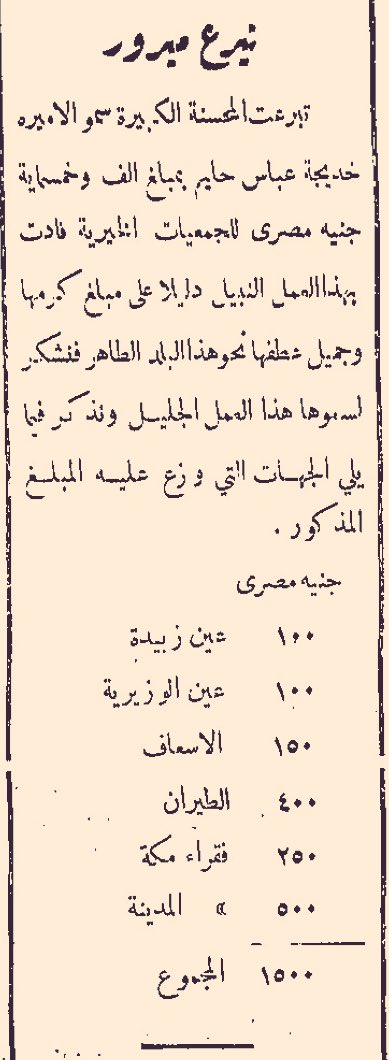 تبرع مبرور
تبرعت المحسنة الكبيرة سمو الاميره
خديجة عباس حليم بمبلغ الف وخمسماية
جنيه مصرى للجمعيات الخيرية فادت
بهذا العمل النبيل دليلا على مبلغ كرمها
وجميل عطفها نحو هذا البلد الطاهر فنشكر
لسموها هذا العمل الجليل ونذكر فيما
يلي الجهات التي وزع عليه المبلغ
المذكور .
جنيه مصرى
١٠٠ عين زبيدة
١٠٠ عين الوزيرية
١٥٠ الاسعاف
٤٠٠ الطيران
٢٥٠ فقراء مكة
٥٠٠ » المدينة
١٥٠٠ المجموع